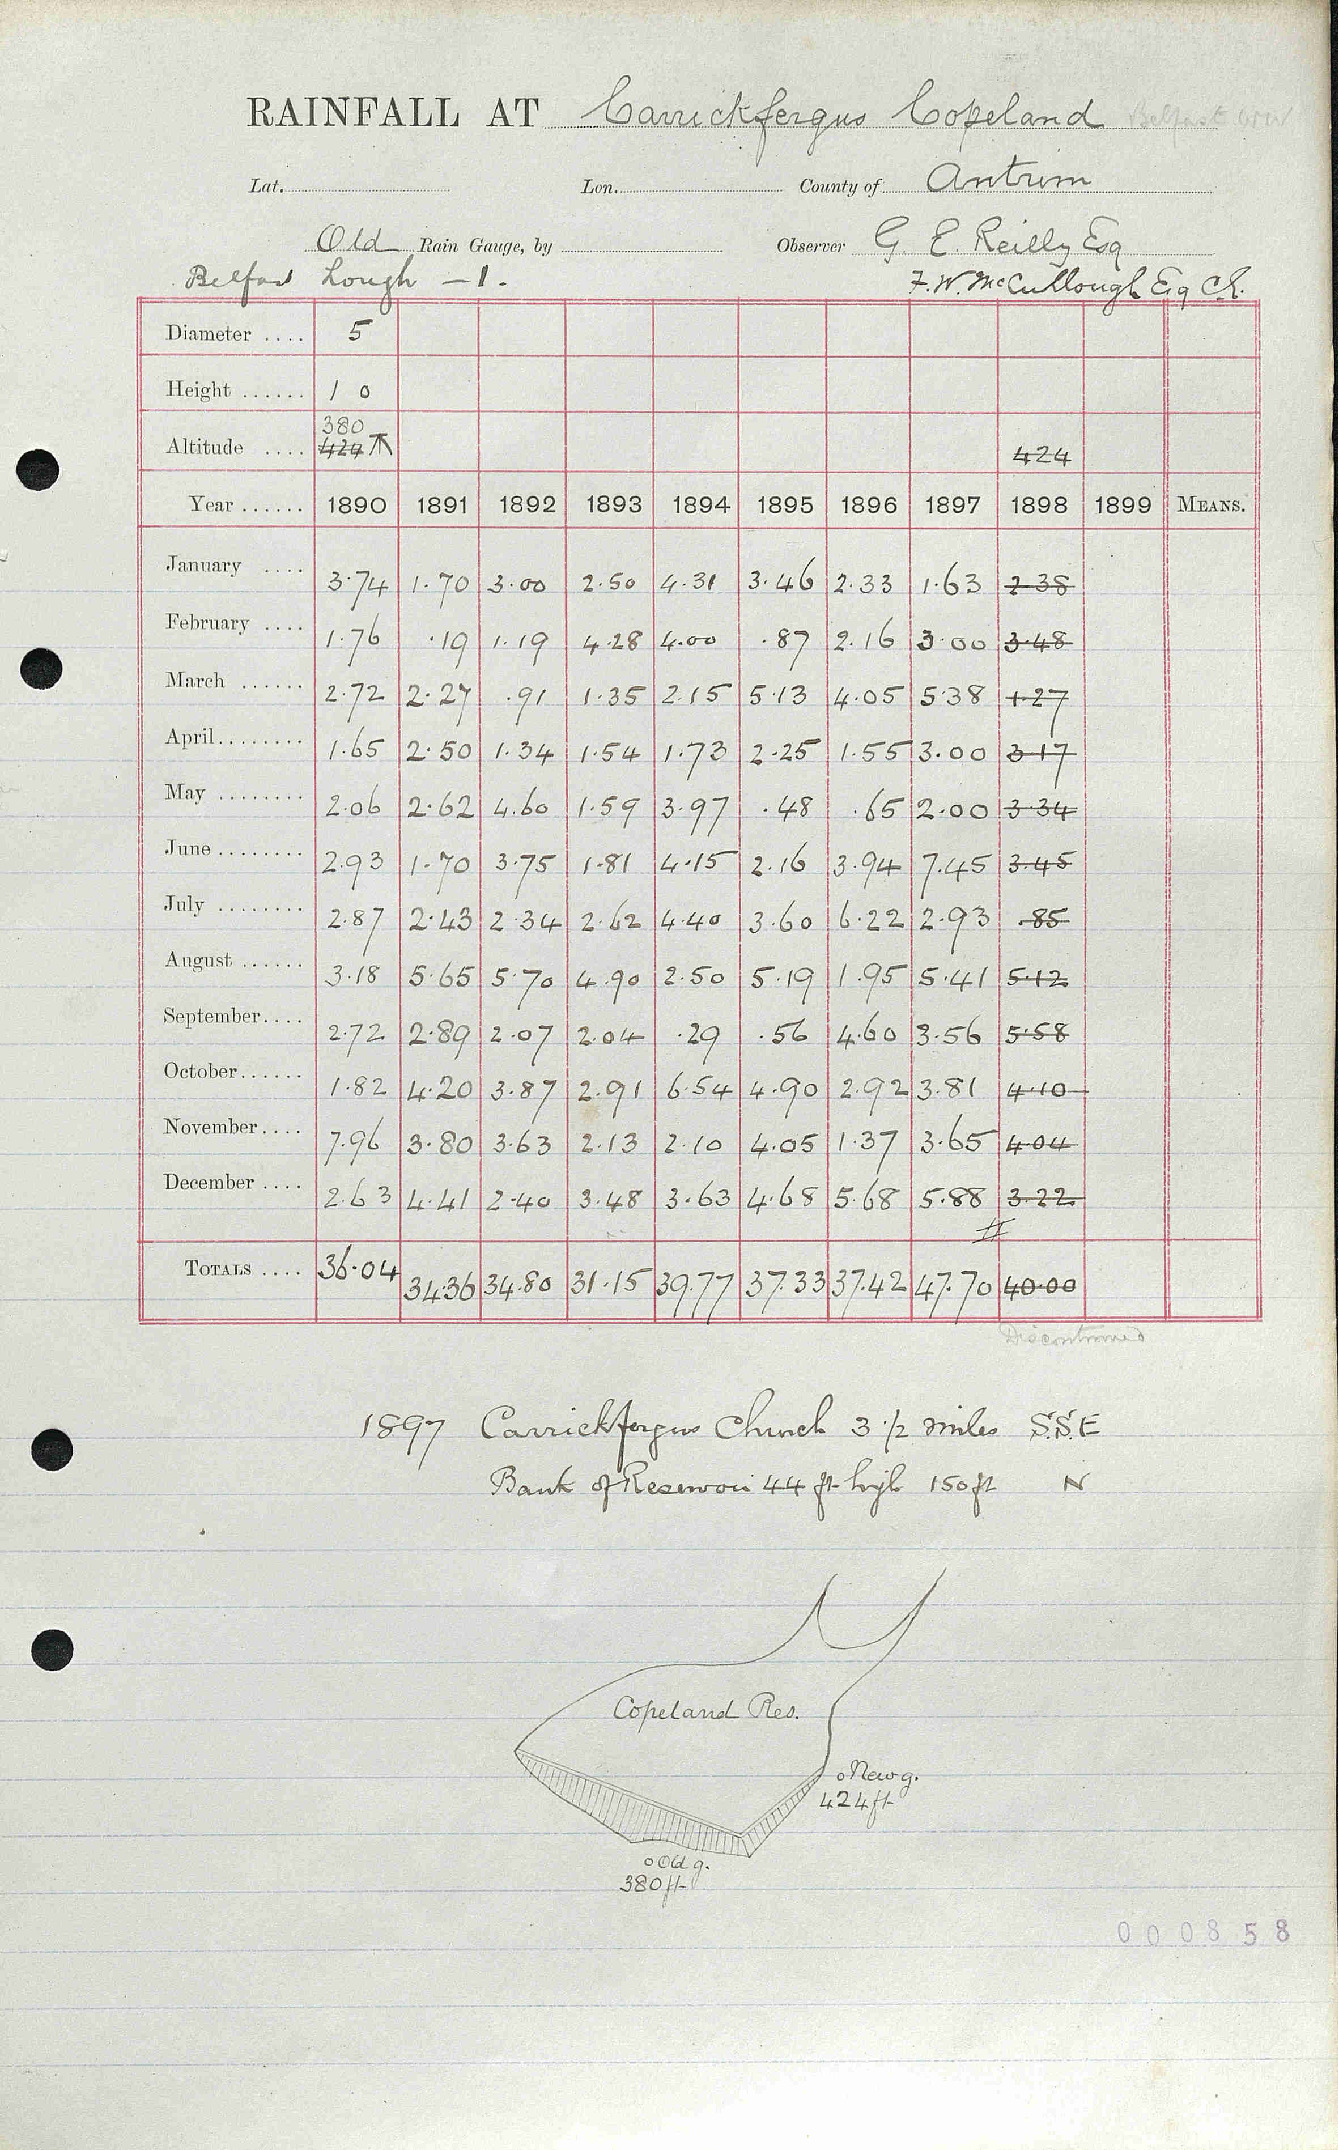 RAINFALL AT Carrickfergus Copeland Belfast WW
Lat. Lon. County of Antrim
Old Rain Gauge, by Observer G. E. Reilly Esq
Belfast Lough – 1. F. W. McCullough Esq C.E.
Diameter .... 5
Height ...... 1 0
380
Altitude .... 424 424
Year ...... 1890 1891 1892 1893 1894 1895 1896 1897 1898 1899 MEANS.
January .... 3.74 1.70 3.00 2.50 4.31 3.46 2.33 1.63 2.38
February .... 1.76 .19 1.19 4.28 4.00 .87 2.16 3.00 3.48
March ...... 2.72 2.27 .91 1.35 2.15 5.13 4.05 5.38 1.27
April........ 1.65 2.50 1.34 1.54 1.73 2.25 1.55 3.00 3.17
May ........ 2.06 2.62 4.60 1.59 3.97 .48 .65 2.00 3.34
June ........ 2.93 1.70 3.75 1.81 4.15 2.16 3.94 7.45 3.45
July ........ 2.87 2.43 2.34 2.62 4.40 3.60 6.22 2.93 .85
August ...... 3.18 5.65 5.70 4.90 2.50 5.19 1.95 5.41 5.12
September.... 2.72 2.89 2.07 2.04 .29 .56 4.60 3.56 5.58
October...... 1.82 4.20 3.87 2.91 6.54 4.90 2.92 3.81 4.10
November.... 7.96 3.80 3.63 2.13 2.10 4.05 1.37 3.65 4.04
December .... 2.63 4.41 2.40 3.48 3.63 4.68 5.68 5.88 3.22
TOTALS .... 36.04 34.36 34.80 31.15 39.77 37.33 37.42 47.70 40.00
Discontinued
1897 Carrickfergus Church 3 1/2 miles S.S.E
Bank of Reservoir 44 ft high 150 ft N
Copeland Res.
o New g.
424 ft
o Old g.
380 ft
000858